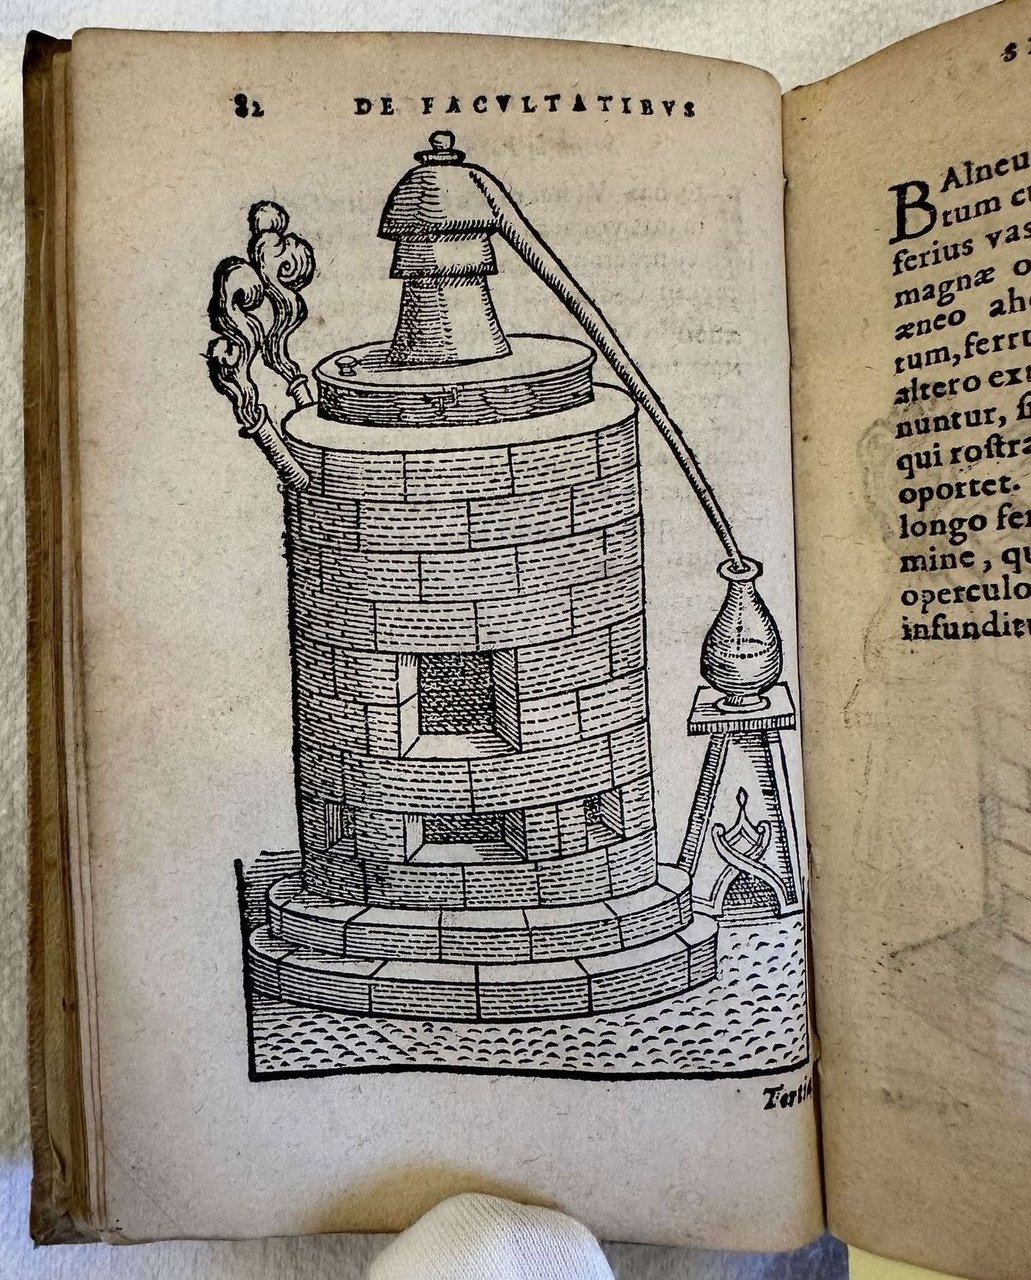 82 DE FACVLTATIBVS
Tertia
S
BAlneu
tum cu
ferius vas
magnæ o
æneo ahe
tum, ferru
altero ext
nuntur, si
qui rostra
oportet.
longo fer
mine, qu
operculo
infunditu